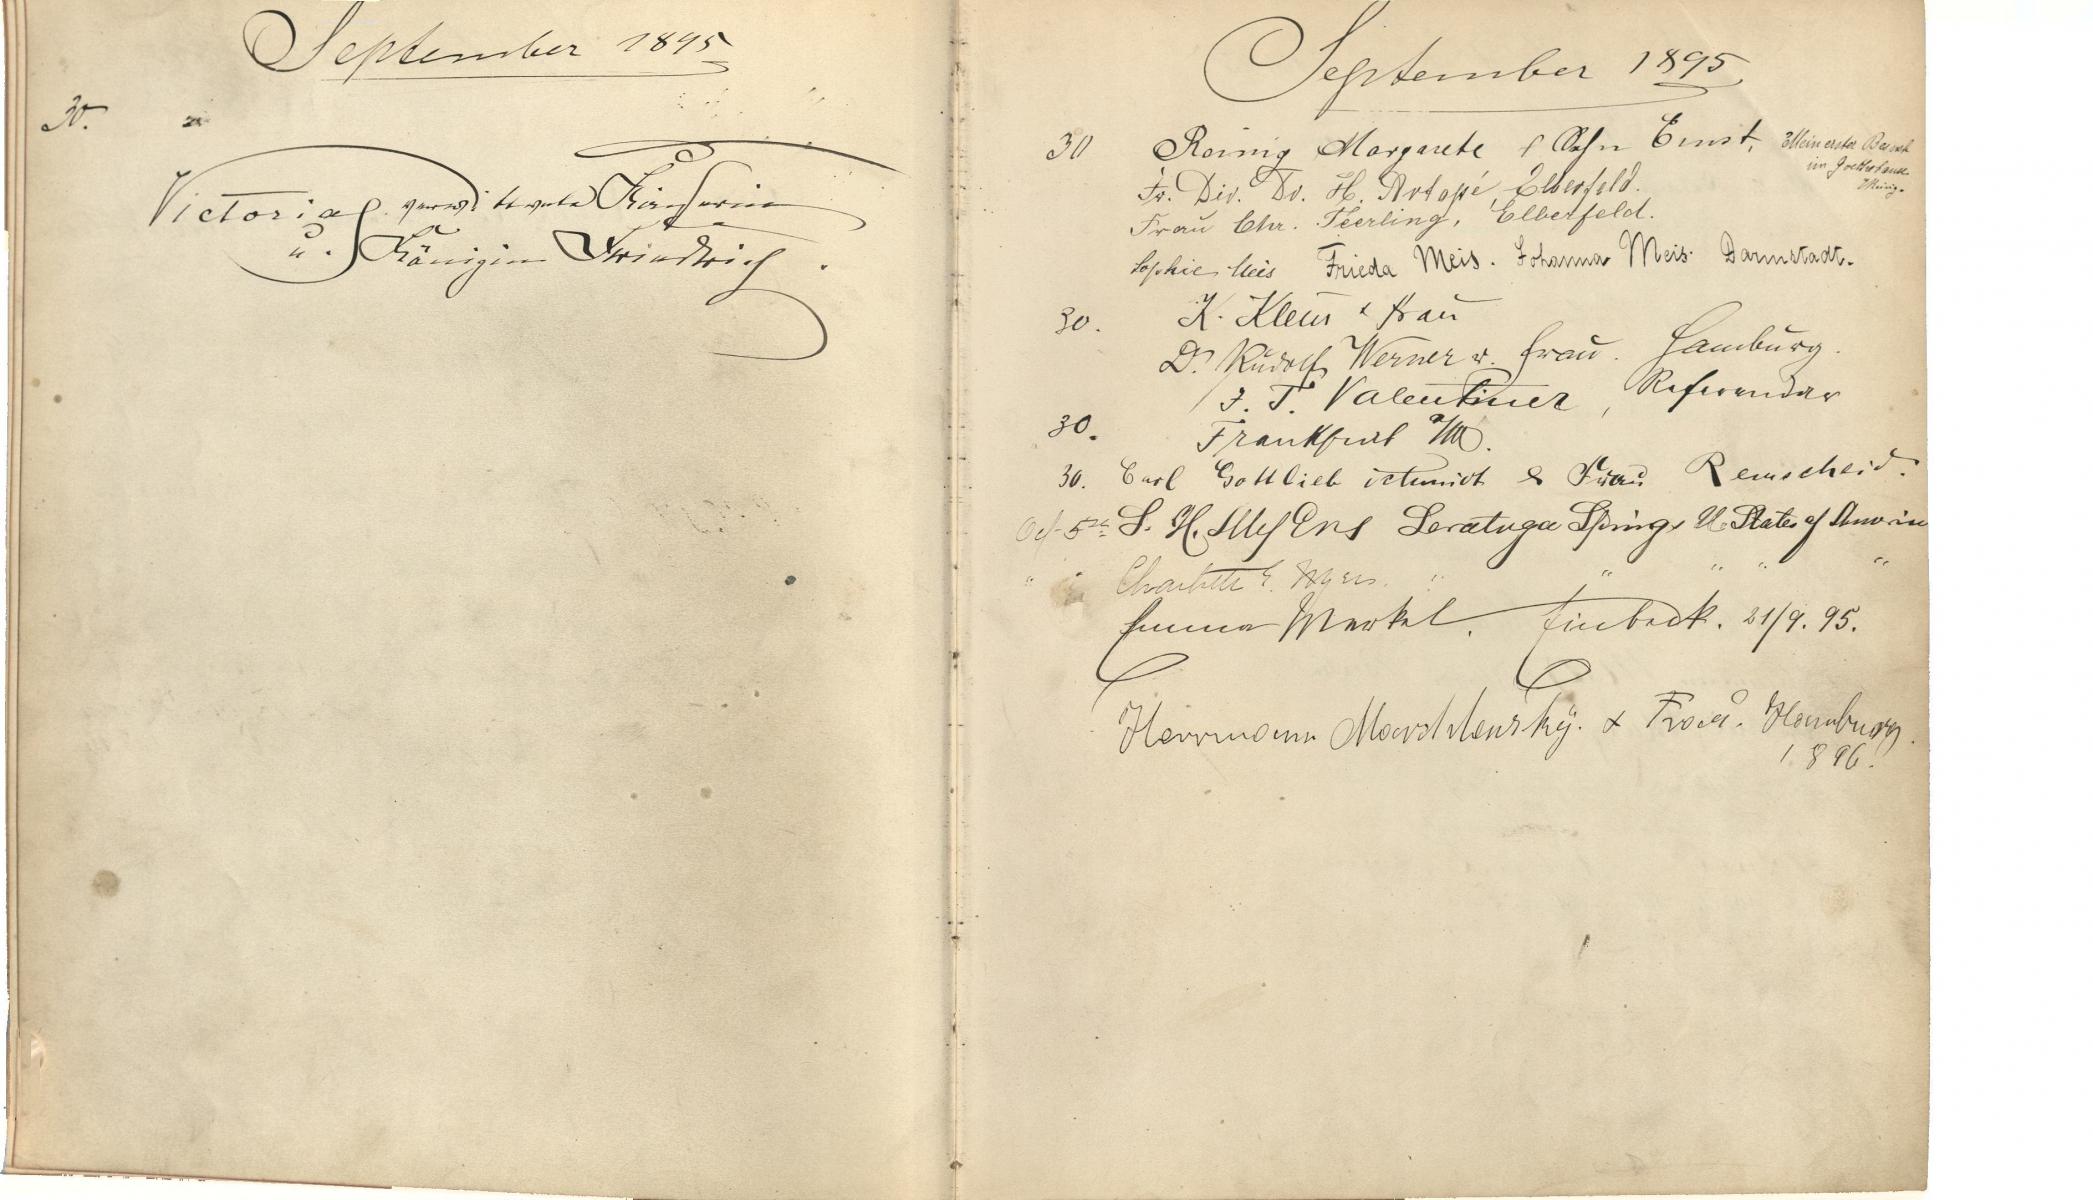 September 1895
30.
Victoria verwittwete Kaiserin
u. Königin Friedrich.
September 1895
30 Reinig Margarete & Sohn Ernst,
Mein erster Besuch
im Goethehause
Fr. Div. Dr. H. Artopé, Elberfeld.
Frau Chr. Teerling, Elberfeld.
Sophie Meis Frieda Meis. Johanna Meis. Darmstadt.
30. K. Klein & Frau
Dr. Rudolf Werner u. Frau. Hamburg.
J. T. Valentiner, Referendar
30. Frankfurt a/M.
30. Carl Gottlieb Schmidt & Frau Remscheid.
Oct 5th S. H. Myers Saratuga Springs U. States of America
" " Charlotte E. Myers. " " " " "
Emma Merkel. Einbeck. 21/9. 95.
Herrmann & Frau. Hamburg.
1896.